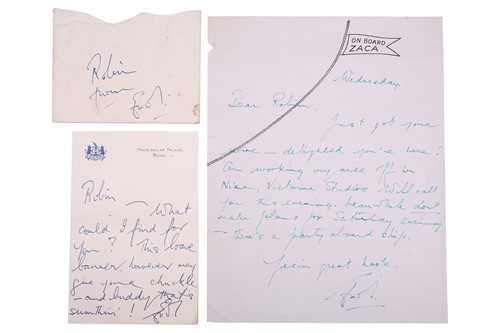 Robin
from
ON BOARD
ZACA
Wednesday
Dear Robin.
Just got your
- delighted you're here!
Am working my off in
Nice, Victorine Studios. Will call
you this evening. Meanwhile don't
make plans for Saturday evening
- there's a party aboard ship.
great haste.
Robin
- What
could I find for
you? This
banner, however, may
give you a chuckle
- and buddy that's
sumthin'!